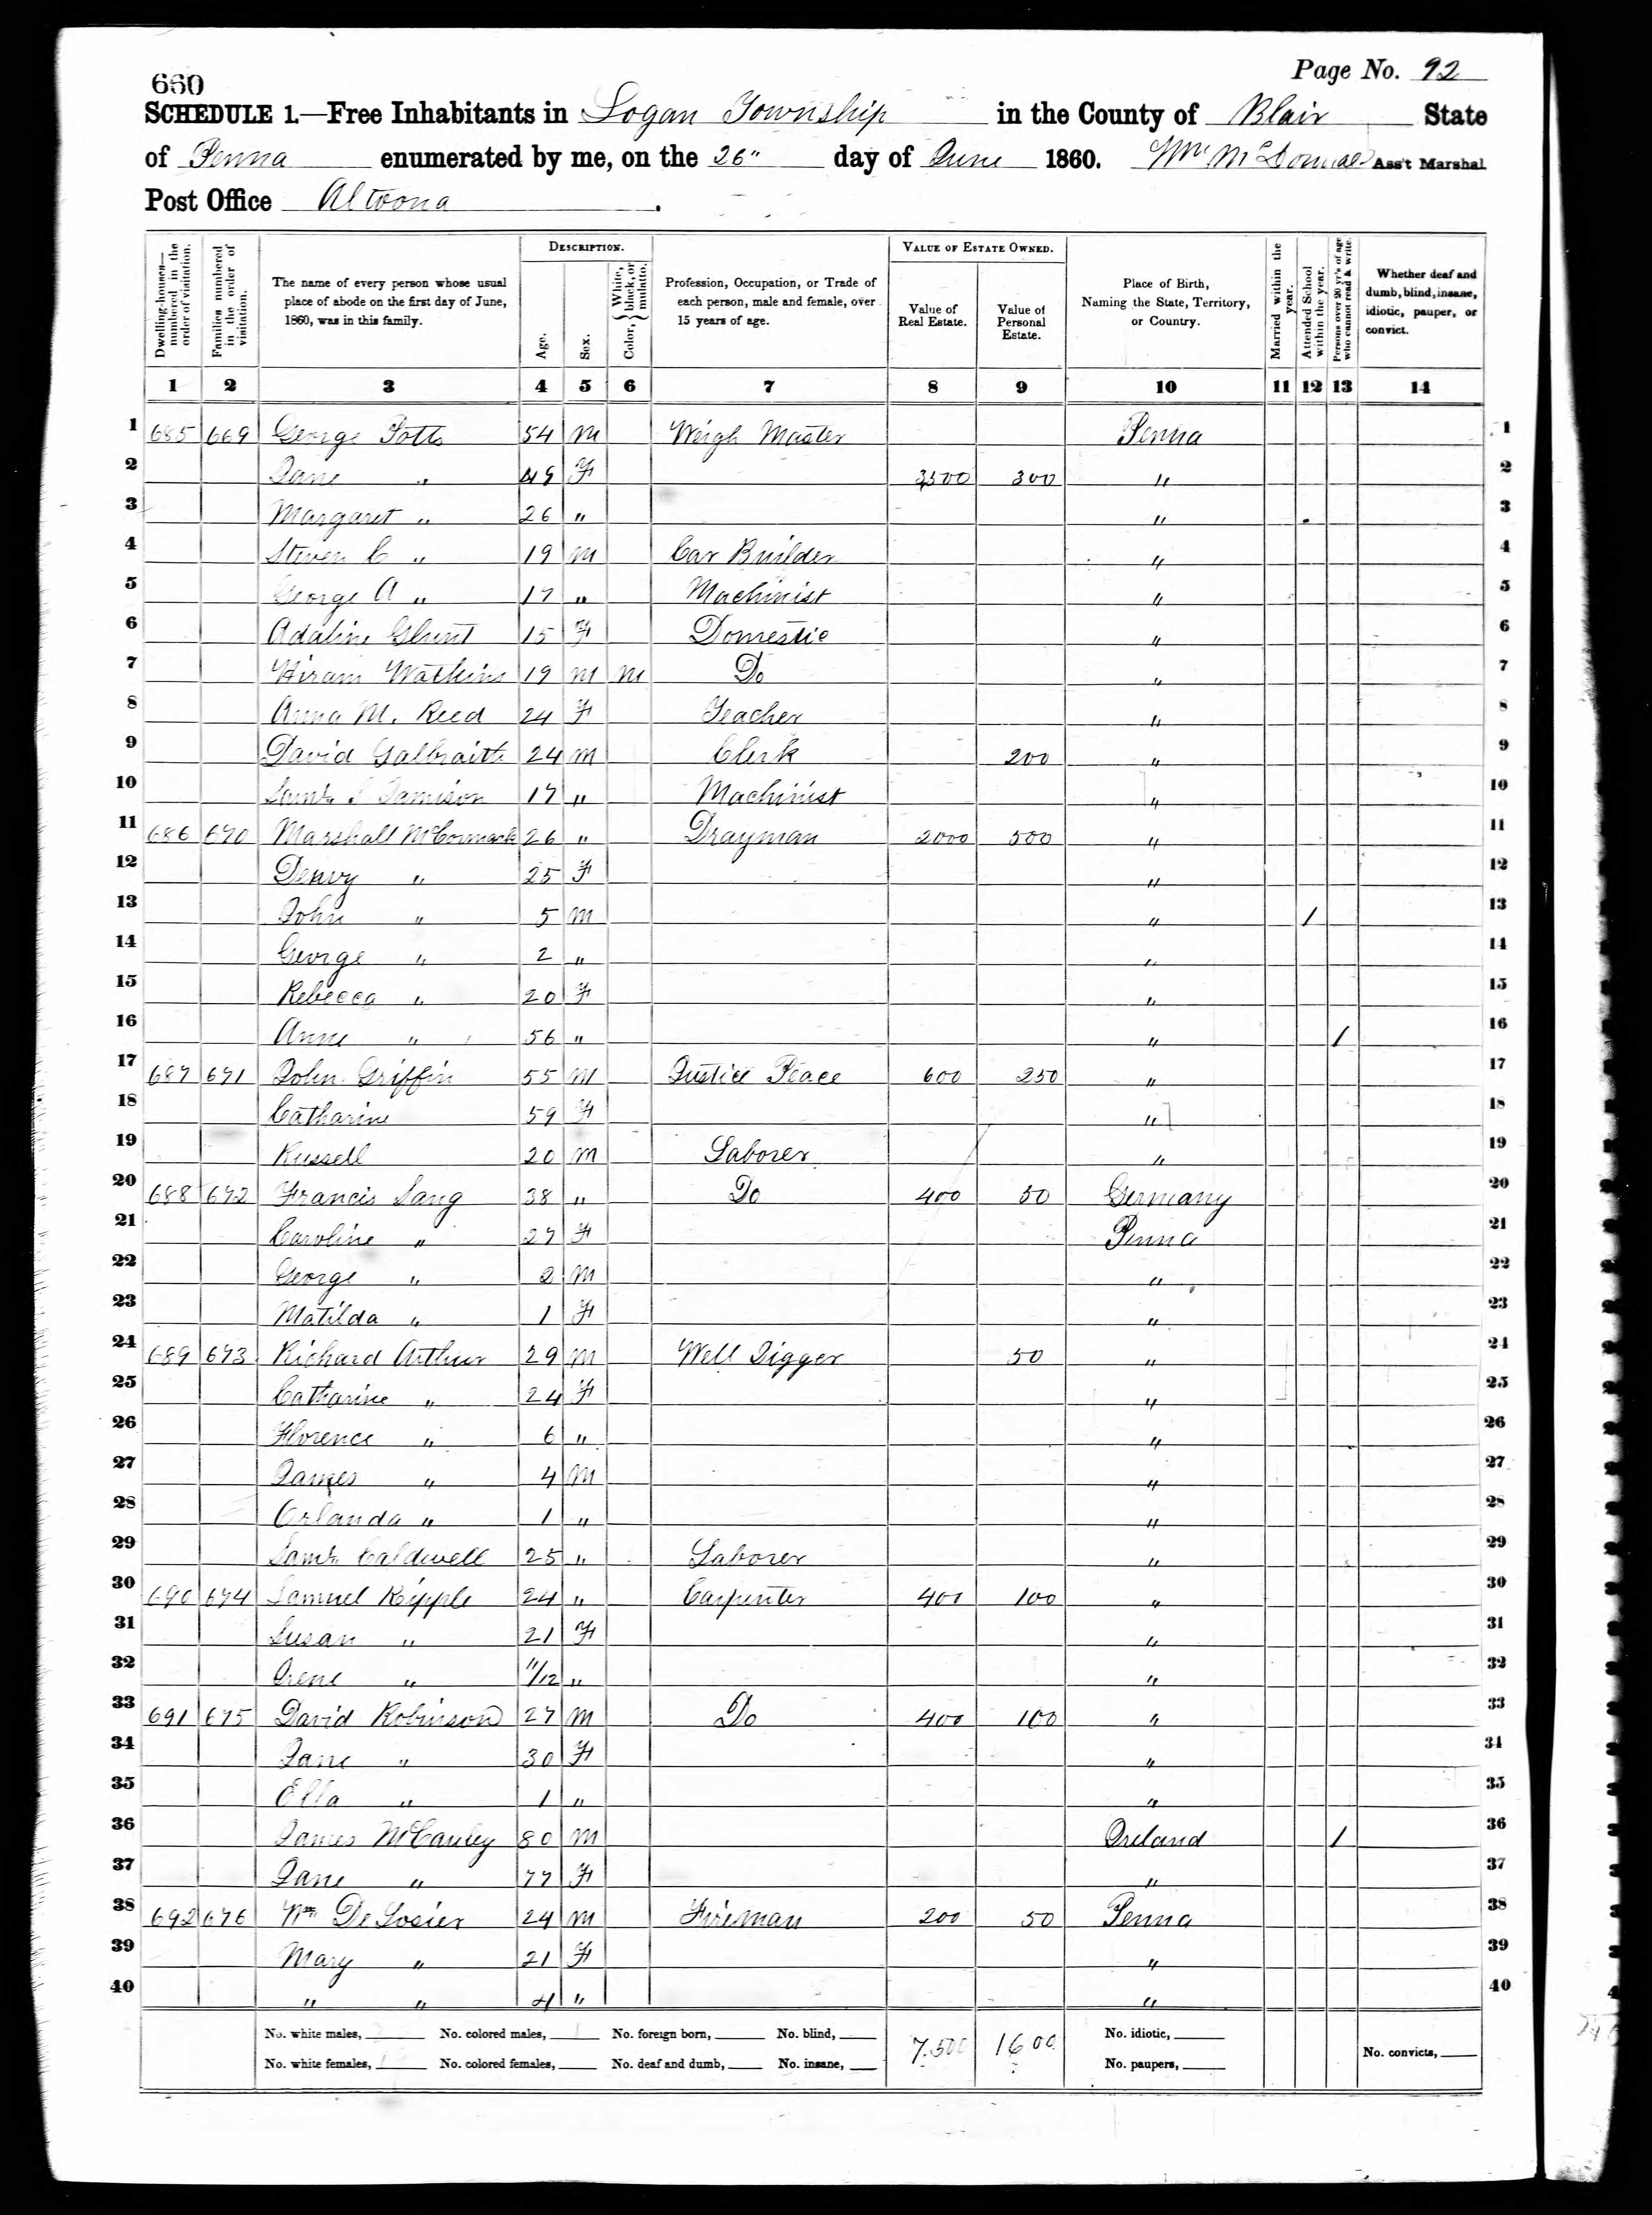 660
Page No. 92
SCHEDULE 1.—Free Inhabitants in Logan Township in the County of Blair State
of Penna enumerated by me, on the 26" day of June 1860. Wm McDonald Ass't Marshal
Post Office Altoona.
Dwelling-houses—numbered in the order of visitation.
Families numbered in the order of visitation.
The name of every person whose usual place of abode on the first day of June, 1860, was in this family.
DESCRIPTION.
Age.
Sex.
Color, { White, black, or mulatto.
Profession, Occupation, or Trade of each person, male and female, over 15 years of age.
VALUE OF ESTATE OWNED.
Value of Real Estate.
Value of Personal Estate.
Place of Birth, Naming the State, Territory, or Country.
Married within the year.
Attended School within the year.
Persons over 20 yr's of age who cannot read & write.
Whether deaf and dumb, blind, insane, idiotic, pauper, or convict.
1 2 3 4 5 6 7 8 9 10 11 12 13 14
1 685 669 George Potts 54 M Weigh Master Penna 1
2 Jane " 49 F 3500 300 " 2
3 Margaret " 26 " " 3
4 Steven C " 19 M Car Builder " 4
5 George A " 17 " Machinist " 5
6 Adaline Glunt 15 F Domestic " 6
7 Hiram Watkins 19 M M Do " 7
8 Anna M. Reed 24 F Teacher " 8
9 David Galbraith 24 M Clerk 200 " 9
10 Saml S Jamison 17 " Machinist " 10
11 686 670 Marshall McCormack 26 " Drayman 2000 500 " 11
12 " 25 F " 12
13 John " 5 M " / 13
14 George " 2 " " 14
15 Rebecca " 20 F " 15
16 Anne " 56 " " / 16
17 687 671 John Griffin 55 M Justice Peace 600 250 " 17
18 Catharine 59 F " 18
19 Russell 20 M Laborer " 19
20 688 672 Francis Lang 38 " Do 400 50 Germany 20
21 Caroline " 27 F Penna 21
22 George " 2 M " 22
23 Matilda " 1 F " 23
24 689 673 Richard Arthur 29 M Well Digger 50 " 24
25 Catharine " 24 F " 25
26 Florence " 6 " " 26
27 James " 4 M " 27
28 Orlanda " 1 " " 28
29 Saml Caldwell 25 " Laborer " 29
30 690 674 Samuel Kipple 24 " Carpenter 400 100 " 30
31 Susan " 21 F " 31
32 Irene " 11/12 " " 32
33 691 675 David Robinson 27 M Do 400 100 " 33
34 Jane " 30 F " 34
35 Ella " 1 " " 35
36 James McCauley 80 M Ireland / 36
37 Jane " 77 F " 37
38 692 676 Wm DeLosier 24 M Fireman 200 50 Penna 38
39 Mary " 21 F " 39
40 " " 4 " " 40
No. white males, No. colored males, No. foreign born, No. blind, 7.500 1600 No. idiotic,
No. white females, No. colored females, No. deaf and dumb, No. insane, No. paupers, No. convicts,